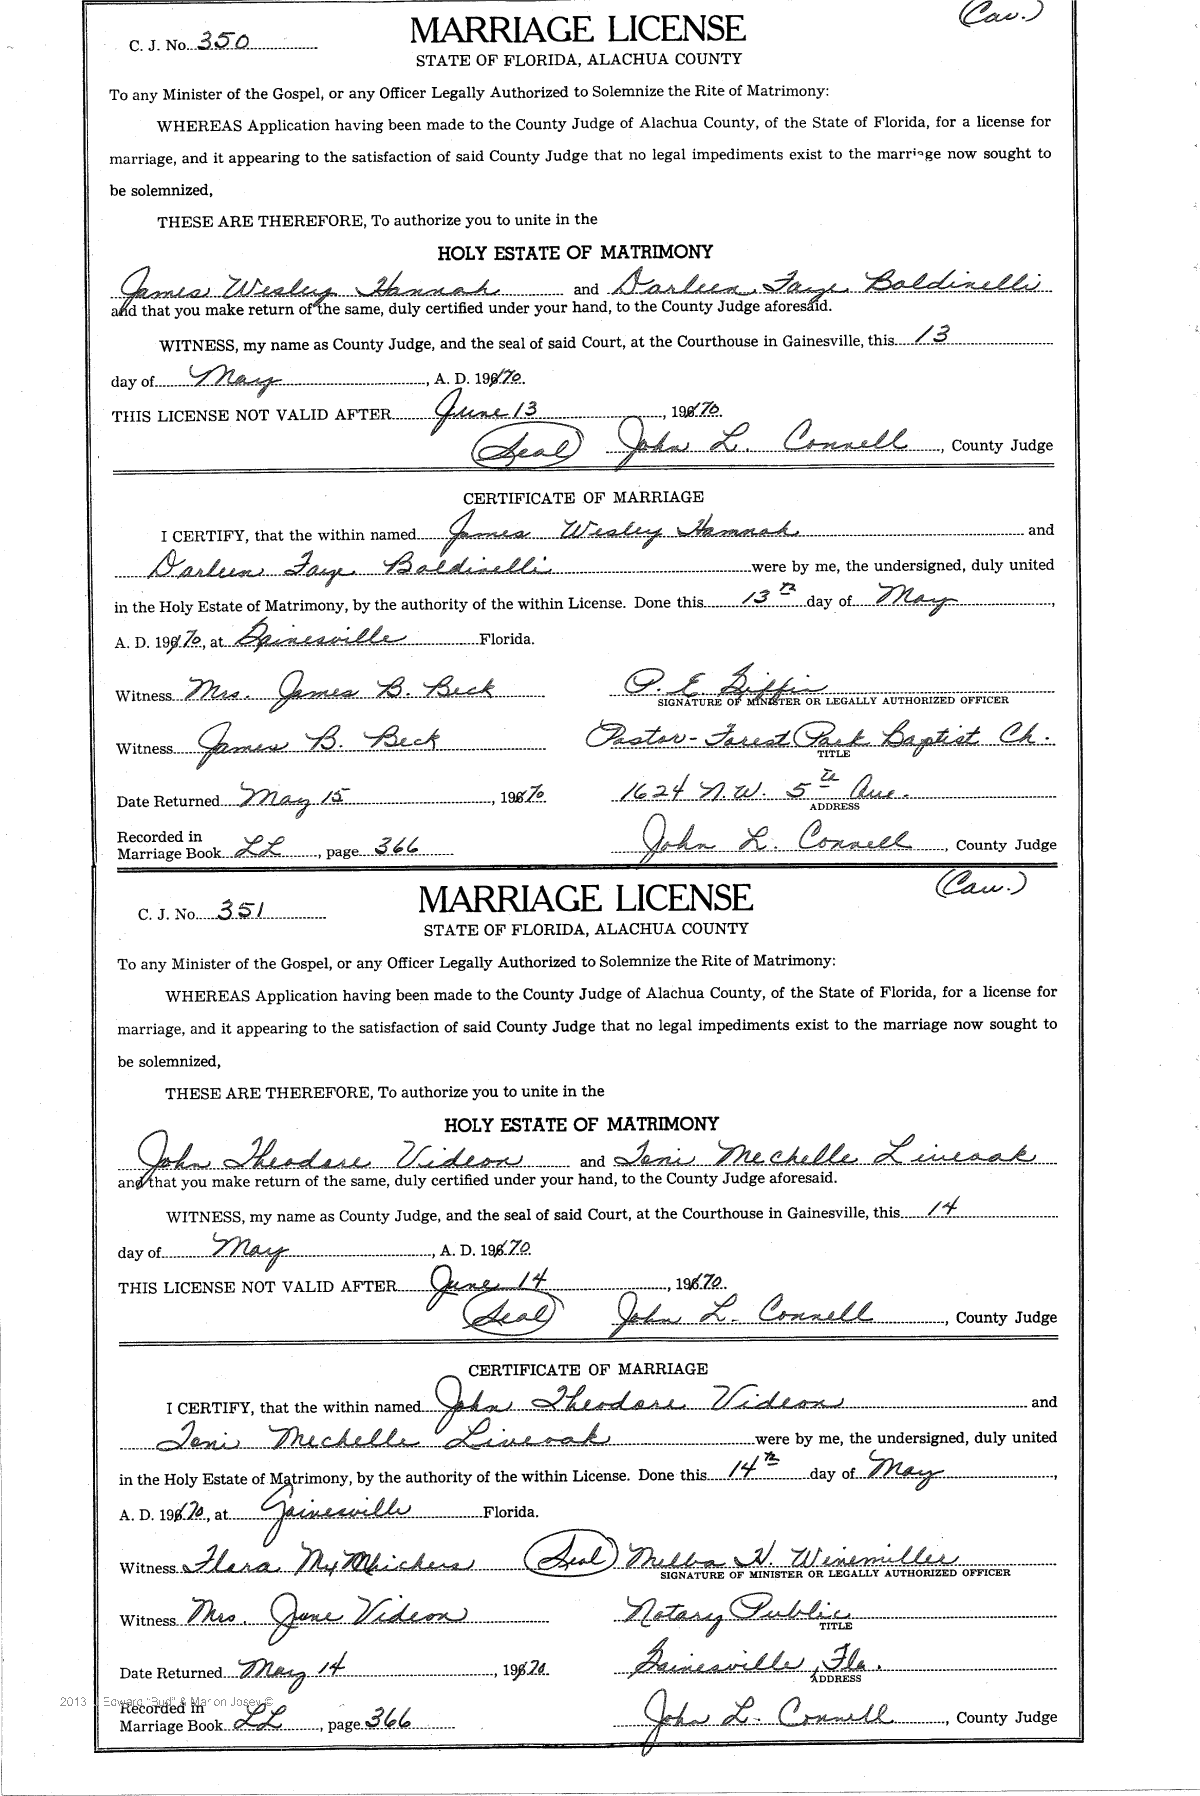 (Cau.)
C. J. No. 350
MARRIAGE LICENSE
STATE OF FLORIDA, ALACHUA COUNTY
To any Minister of the Gospel, or any Officer Legally Authorized to Solemnize the Rite of Matrimony:
WHEREAS Application having been made to the County Judge of Alachua County, of the State of Florida, for a license for
marriage, and it appearing to the satisfaction of said County Judge that no legal impediments exist to the marriage now sought to
be solemnized,
THESE ARE THEREFORE, To authorize you to unite in the
HOLY ESTATE OF MATRIMONY
James Wesley Hannah and Darleen Faye Boldinelli
and that you make return of the same, duly certified under your hand, to the County Judge aforesaid.
WITNESS, my name as County Judge, and the seal of said Court, at the Courthouse in Gainesville, this 13
day of May, A. D. 1970.
THIS LICENSE NOT VALID AFTER June 13, 1970.
(Seal) John L. Connell, County Judge
CERTIFICATE OF MARRIAGE
I CERTIFY, that the within named James Wesley Hannah and
Darleen Faye Boldinelli were by me, the undersigned, duly united
in the Holy Estate of Matrimony, by the authority of the within License. Done this 13th day of May,
A. D. 1970, at Gainesville Florida.
Witness Mrs. James B. Beck P. E. Giffin
SIGNATURE OF MINISTER OR LEGALLY AUTHORIZED OFFICER
Witness James B. Beck Pastor-Forest Park Baptist Ch.
TITLE
Date Returned May 15, 1970 1624 N.W. 5th Ave.
ADDRESS
Recorded in
Marriage Book LL, page 366 John L. Connell, County Judge
(Cau.)
C. J. No. 351
MARRIAGE LICENSE
STATE OF FLORIDA, ALACHUA COUNTY
To any Minister of the Gospel, or any Officer Legally Authorized to Solemnize the Rite of Matrimony:
WHEREAS Application having been made to the County Judge of Alachua County, of the State of Florida, for a license for
marriage, and it appearing to the satisfaction of said County Judge that no legal impediments exist to the marriage now sought to
be solemnized,
THESE ARE THEREFORE, To authorize you to unite in the
HOLY ESTATE OF MATRIMONY
John Theodore Videon and Toni Mechelle Liveoak
and that you make return of the same, duly certified under your hand, to the County Judge aforesaid.
WITNESS, my name as County Judge, and the seal of said Court, at the Courthouse in Gainesville, this 14
day of May, A. D. 1970.
THIS LICENSE NOT VALID AFTER June 14, 1970.
(Seal) John L. Connell, County Judge
CERTIFICATE OF MARRIAGE
I CERTIFY, that the within named John Theodore Videon and
Toni Mechelle Liveoak were by me, the undersigned, duly united
in the Holy Estate of Matrimony, by the authority of the within License. Done this 14th day of May,
A. D. 1970, at Gainesville Florida.
Witness Flora (Seal) Melba H. Winemiller
SIGNATURE OF MINISTER OR LEGALLY AUTHORIZED OFFICER
Witness Mrs. June Videon Notary Public
TITLE
Date Returned May 14, 1970 Gainesville, Fla.
ADDRESS
2013 Edward "Bud" & Marion Josey ©
Recorded in
Marriage Book LL, page 366 John L. Connell, County Judge